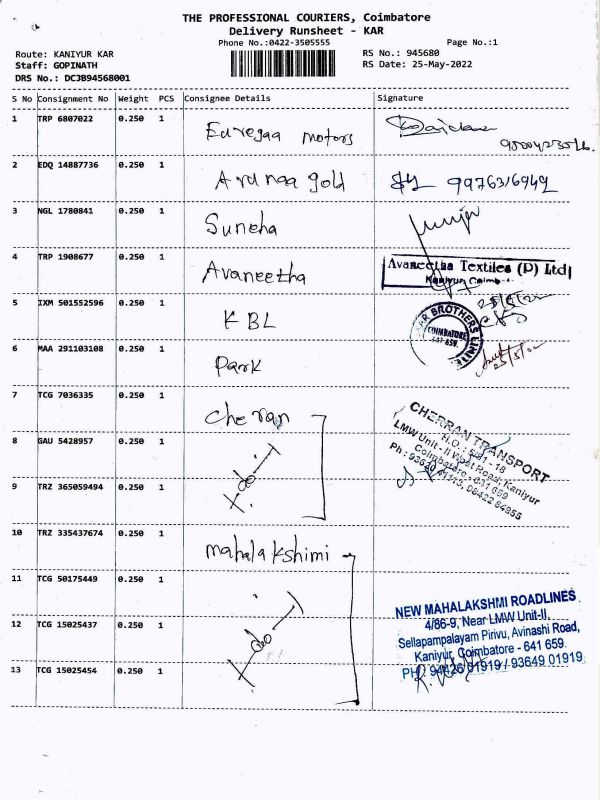 THE PROFESSIONAL COURIERS, Coimbatore
Delivery Runsheet - KAR
Phone No.:0422-3505555
Page No.:1
Route: KANIYUR KAR
Staff: GOPINATH
DRS No.: DCJB94568001
RS No.: 945680
RS Date: 25-May-2022
S No Consignment No Weight PCS Consignee Details Signature
1 TRP 6807022 0.250 1 Euregaa motors
2 EDQ 14887736 0.250 1 Arunaa gold 9976316949
3 NGL 1780841 0.250 1 Suneha
4 TRP 1908677 0.250 1 Avaneetha
Avaneetha Textiles (P) Ltd
5 IXM 501552596 0.250 1 KBL
BROTHERS LIMITE
COIMBATORE
6 MAA 291103108 0.250 1 Park
7 TCG 7036335 0.250 1 Cheran
CHERRAN TRANSPORT
8 GAU 5428957 0.250 1 -do-
9 TRZ 365059494 0.250 1
10 TRZ 335437674 0.250 1 mahalakshimi
11 TCG 50175449 0.250 1
12 TCG 15025437 0.250 1 -do-
13 TCG 15025454 0.250 1
NEW MAHALAKSHMI ROADLINES
4/86-9, Near LMW Unit-II,
Sellapampalayam Pirivu, Avinashi Road,
Kaniyur, Coimbatore - 641 659.
PH: 94426 01919 / 93649 01919